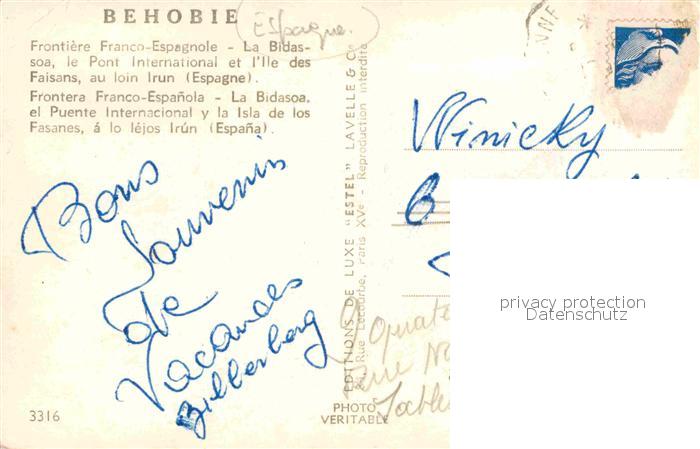 BEHOBIE
Espagne.
Frontière Franco-Espagnole - La Bidas-
soa, le Pont International et l'Ile des
Faisans, au loin Irun (Espagne).
Frontera Franco-Española - La Bidasoa.
el Puente Internacional y la Isla de los
Fasanes, á lo léjos Irún (España).
Bons
Souvenirs
de
Vacances
Zillerberg
3316
PHOTO
VERITABLE
EDITIONS DE LUXE "ESTEL" LAVELLE & Cie
Rue Lecourbe, Paris XVe - Reproduction interdite
Winicky
6
privacy protection
Datenschutz